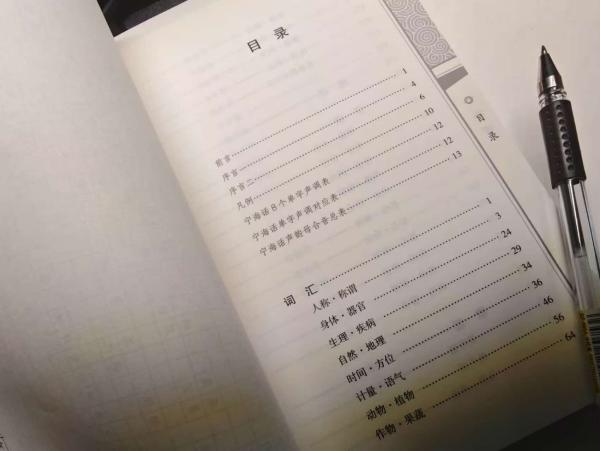 目录
前言 1
序言一 4
序言二 6
凡例 10
宁海话8个单字声调表 12
宁海话单字声调对应表 12
宁海话声韵母合音总表 13
词汇 1
人称·称谓 3
身体·器官 24
生理·疾病 29
自然·地理 34
时间·方位 36
计量·语气 46
动物·植物 56
作物·果蔬 64
目录